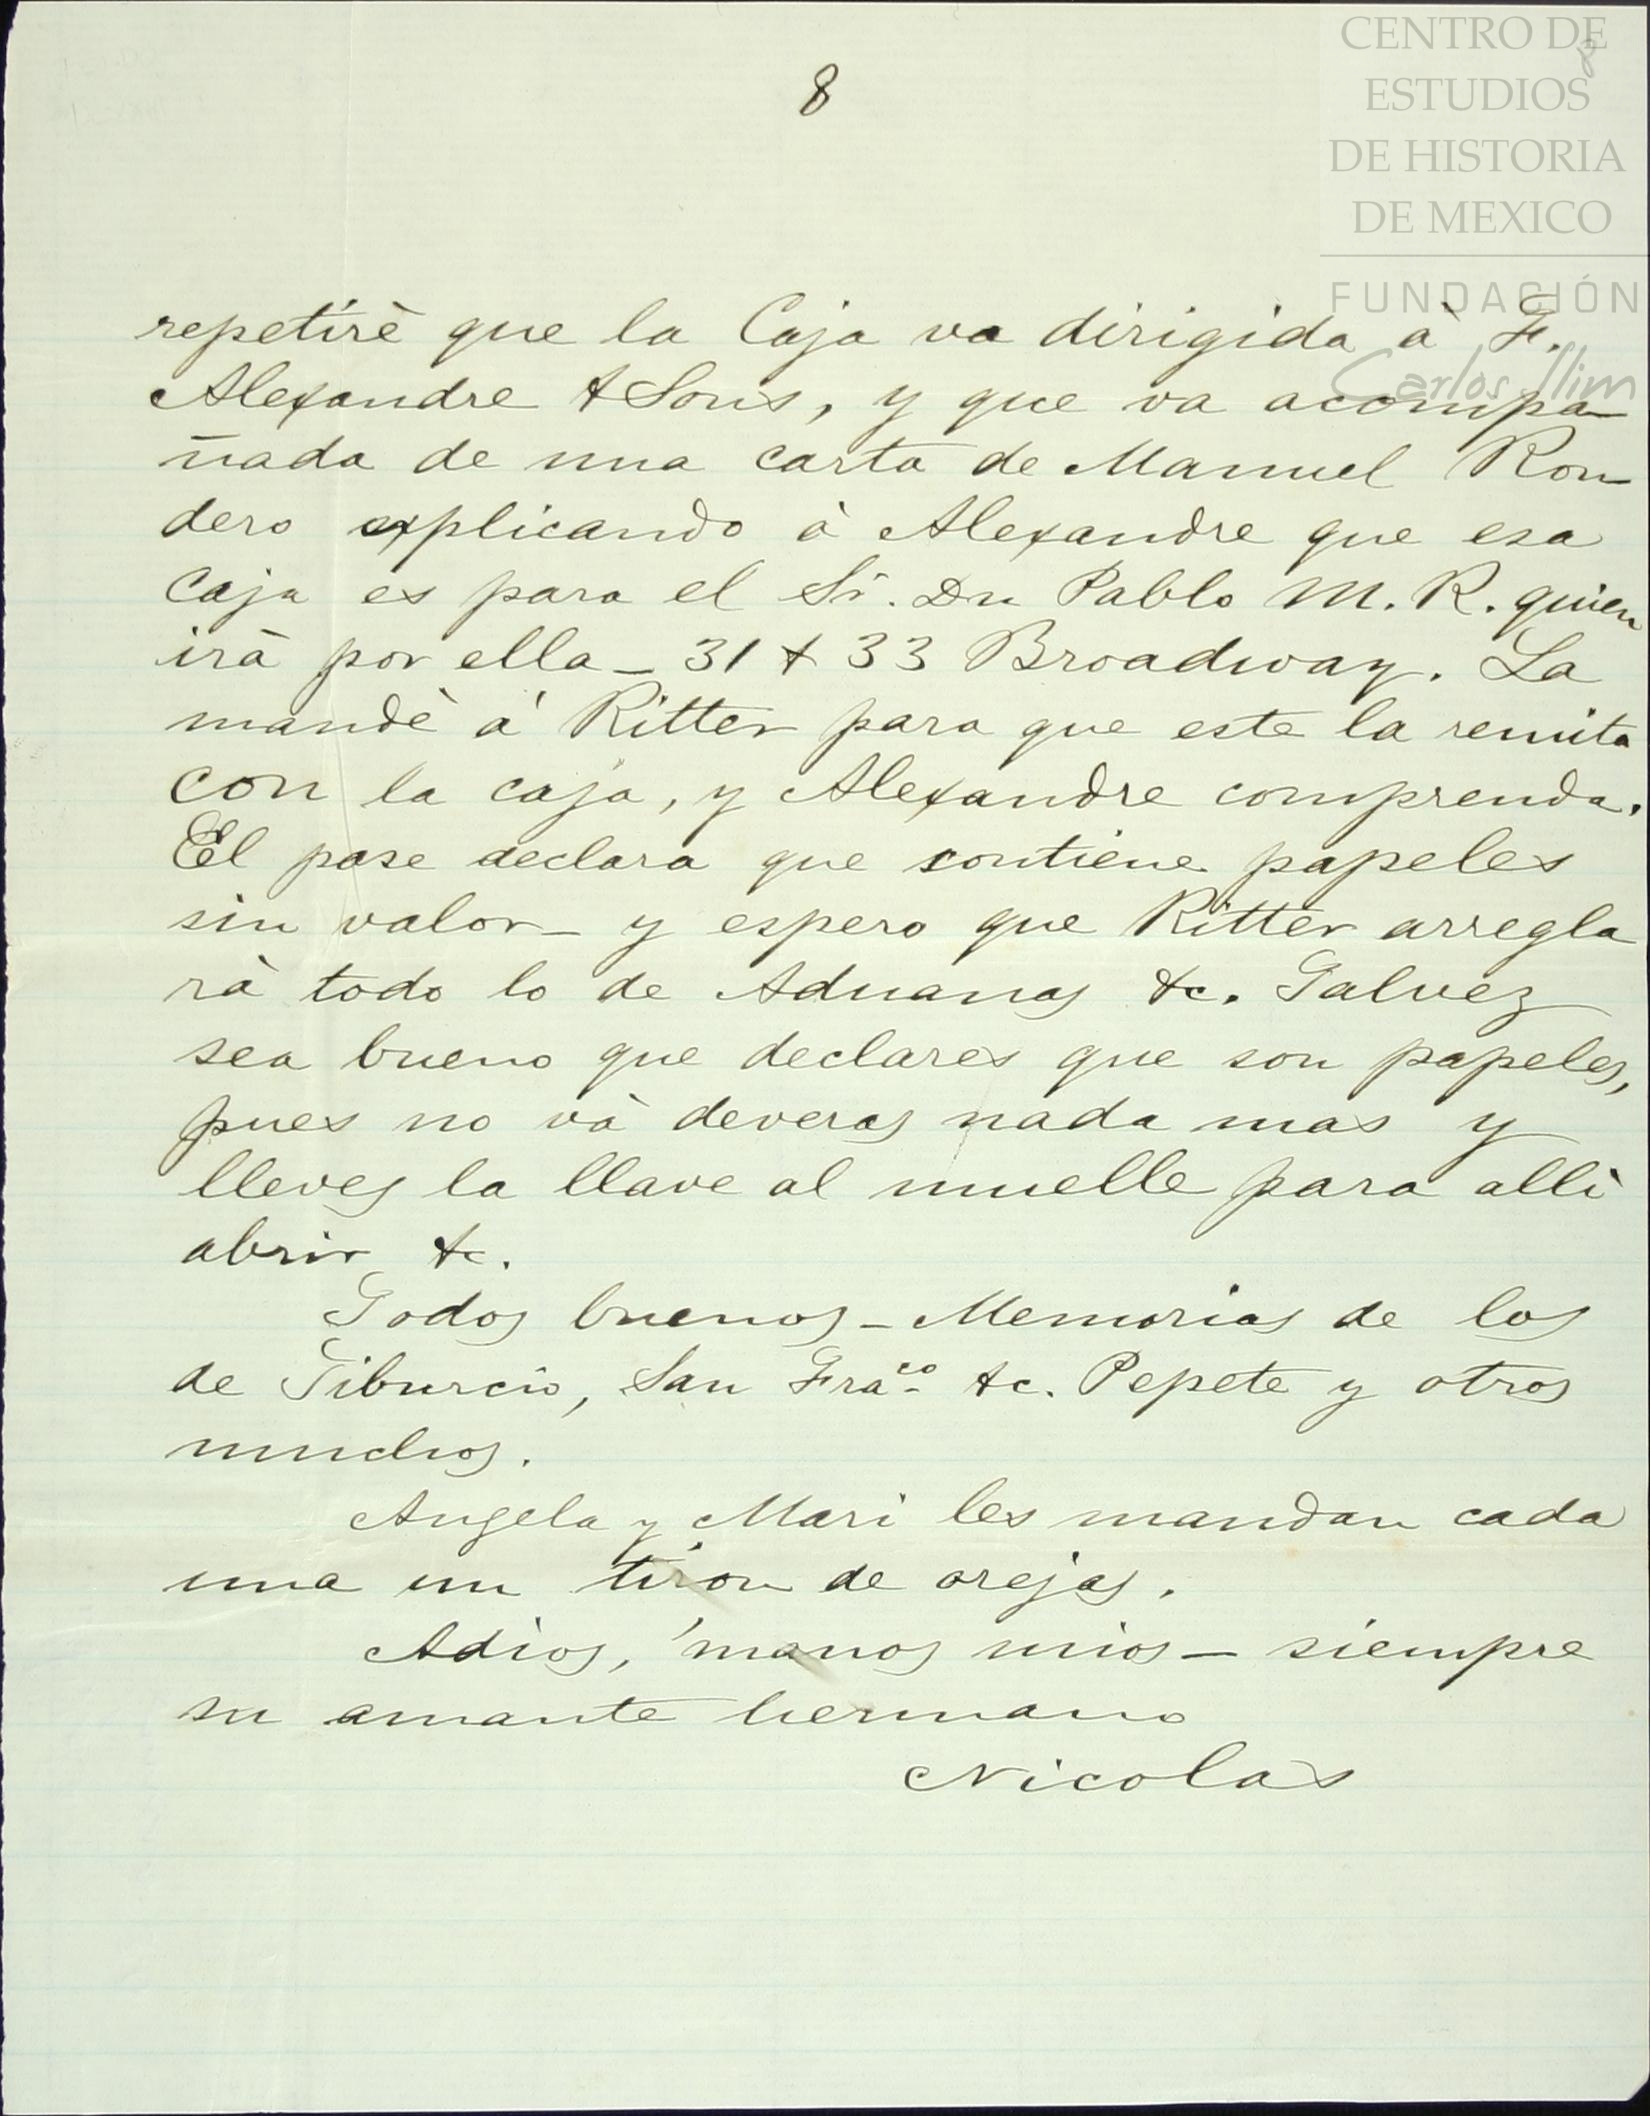 CENTRO DE
ESTUDIOS
DE HISTORIA
DE MEXICO
FUNDACIÓN
Carlos Slim
8
8
repetiré que la Caja va dirigida à F.
Alexandre & Sons, y que va acompa-
ñada de una carta de Manuel Ron-
dero explicando à Alexandre que esa
Caja es para el Sr. Dn Pablo M. R. quien
irà por ella _ 31 & 33 Broadway. La
mandè á Ritter para que este la remita
con la caja, y Alexandre comprenda.
El pase declara que contiene papeles
sin valor _ y espero que Ritter arregla
rà todo lo de Aduanas &c. Talvez
sea bueno que declares que son papeles,
pues no và deveras nada mas y
lleves la llave al muelle para alli
abrir &c.
Todos buenos _ Memorias de los
de Tiburcio, San Fraco. &c. Pepete y otros
muchos.
Angela y Mari les mandan cada
una un tiron de orejas.
Adios, 'manos mios _ siempre
su amante hermano
Nicolas